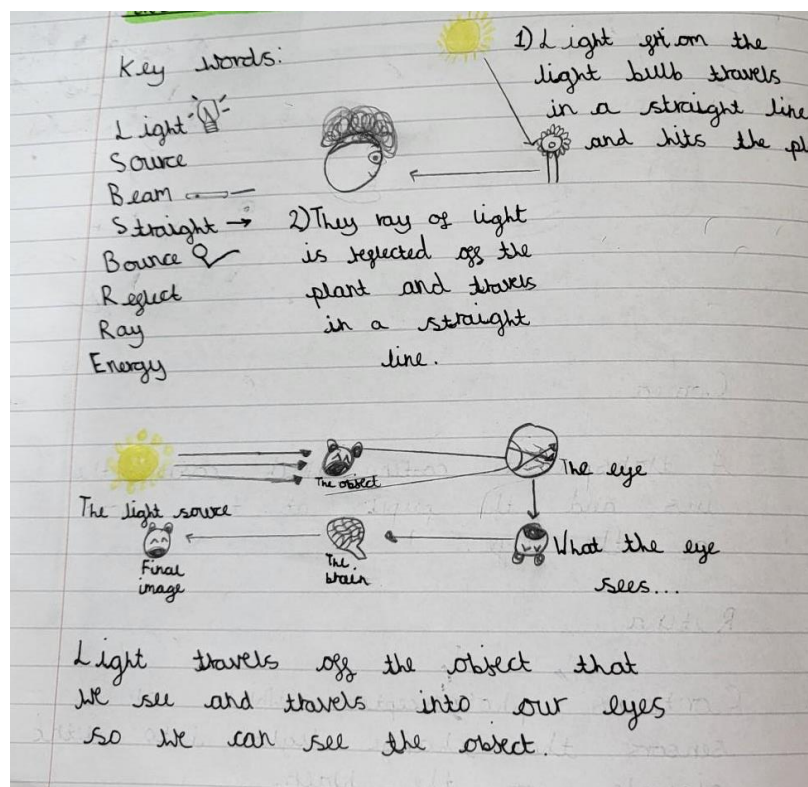 Key words:
Light
Source
Beam
Straight
Bounce
Reglect
Ray
Energy
1) Light from the
light bulb travels
in a straight line
and hits the pl
2) They ray of light
is reglected off the
plant and travels
in a straight
line.
The light source
The object
The eye
What the eye
sees...
The brain
Final
image
Light travels off the object that
we see and travels into our eyes
so we can see the object.